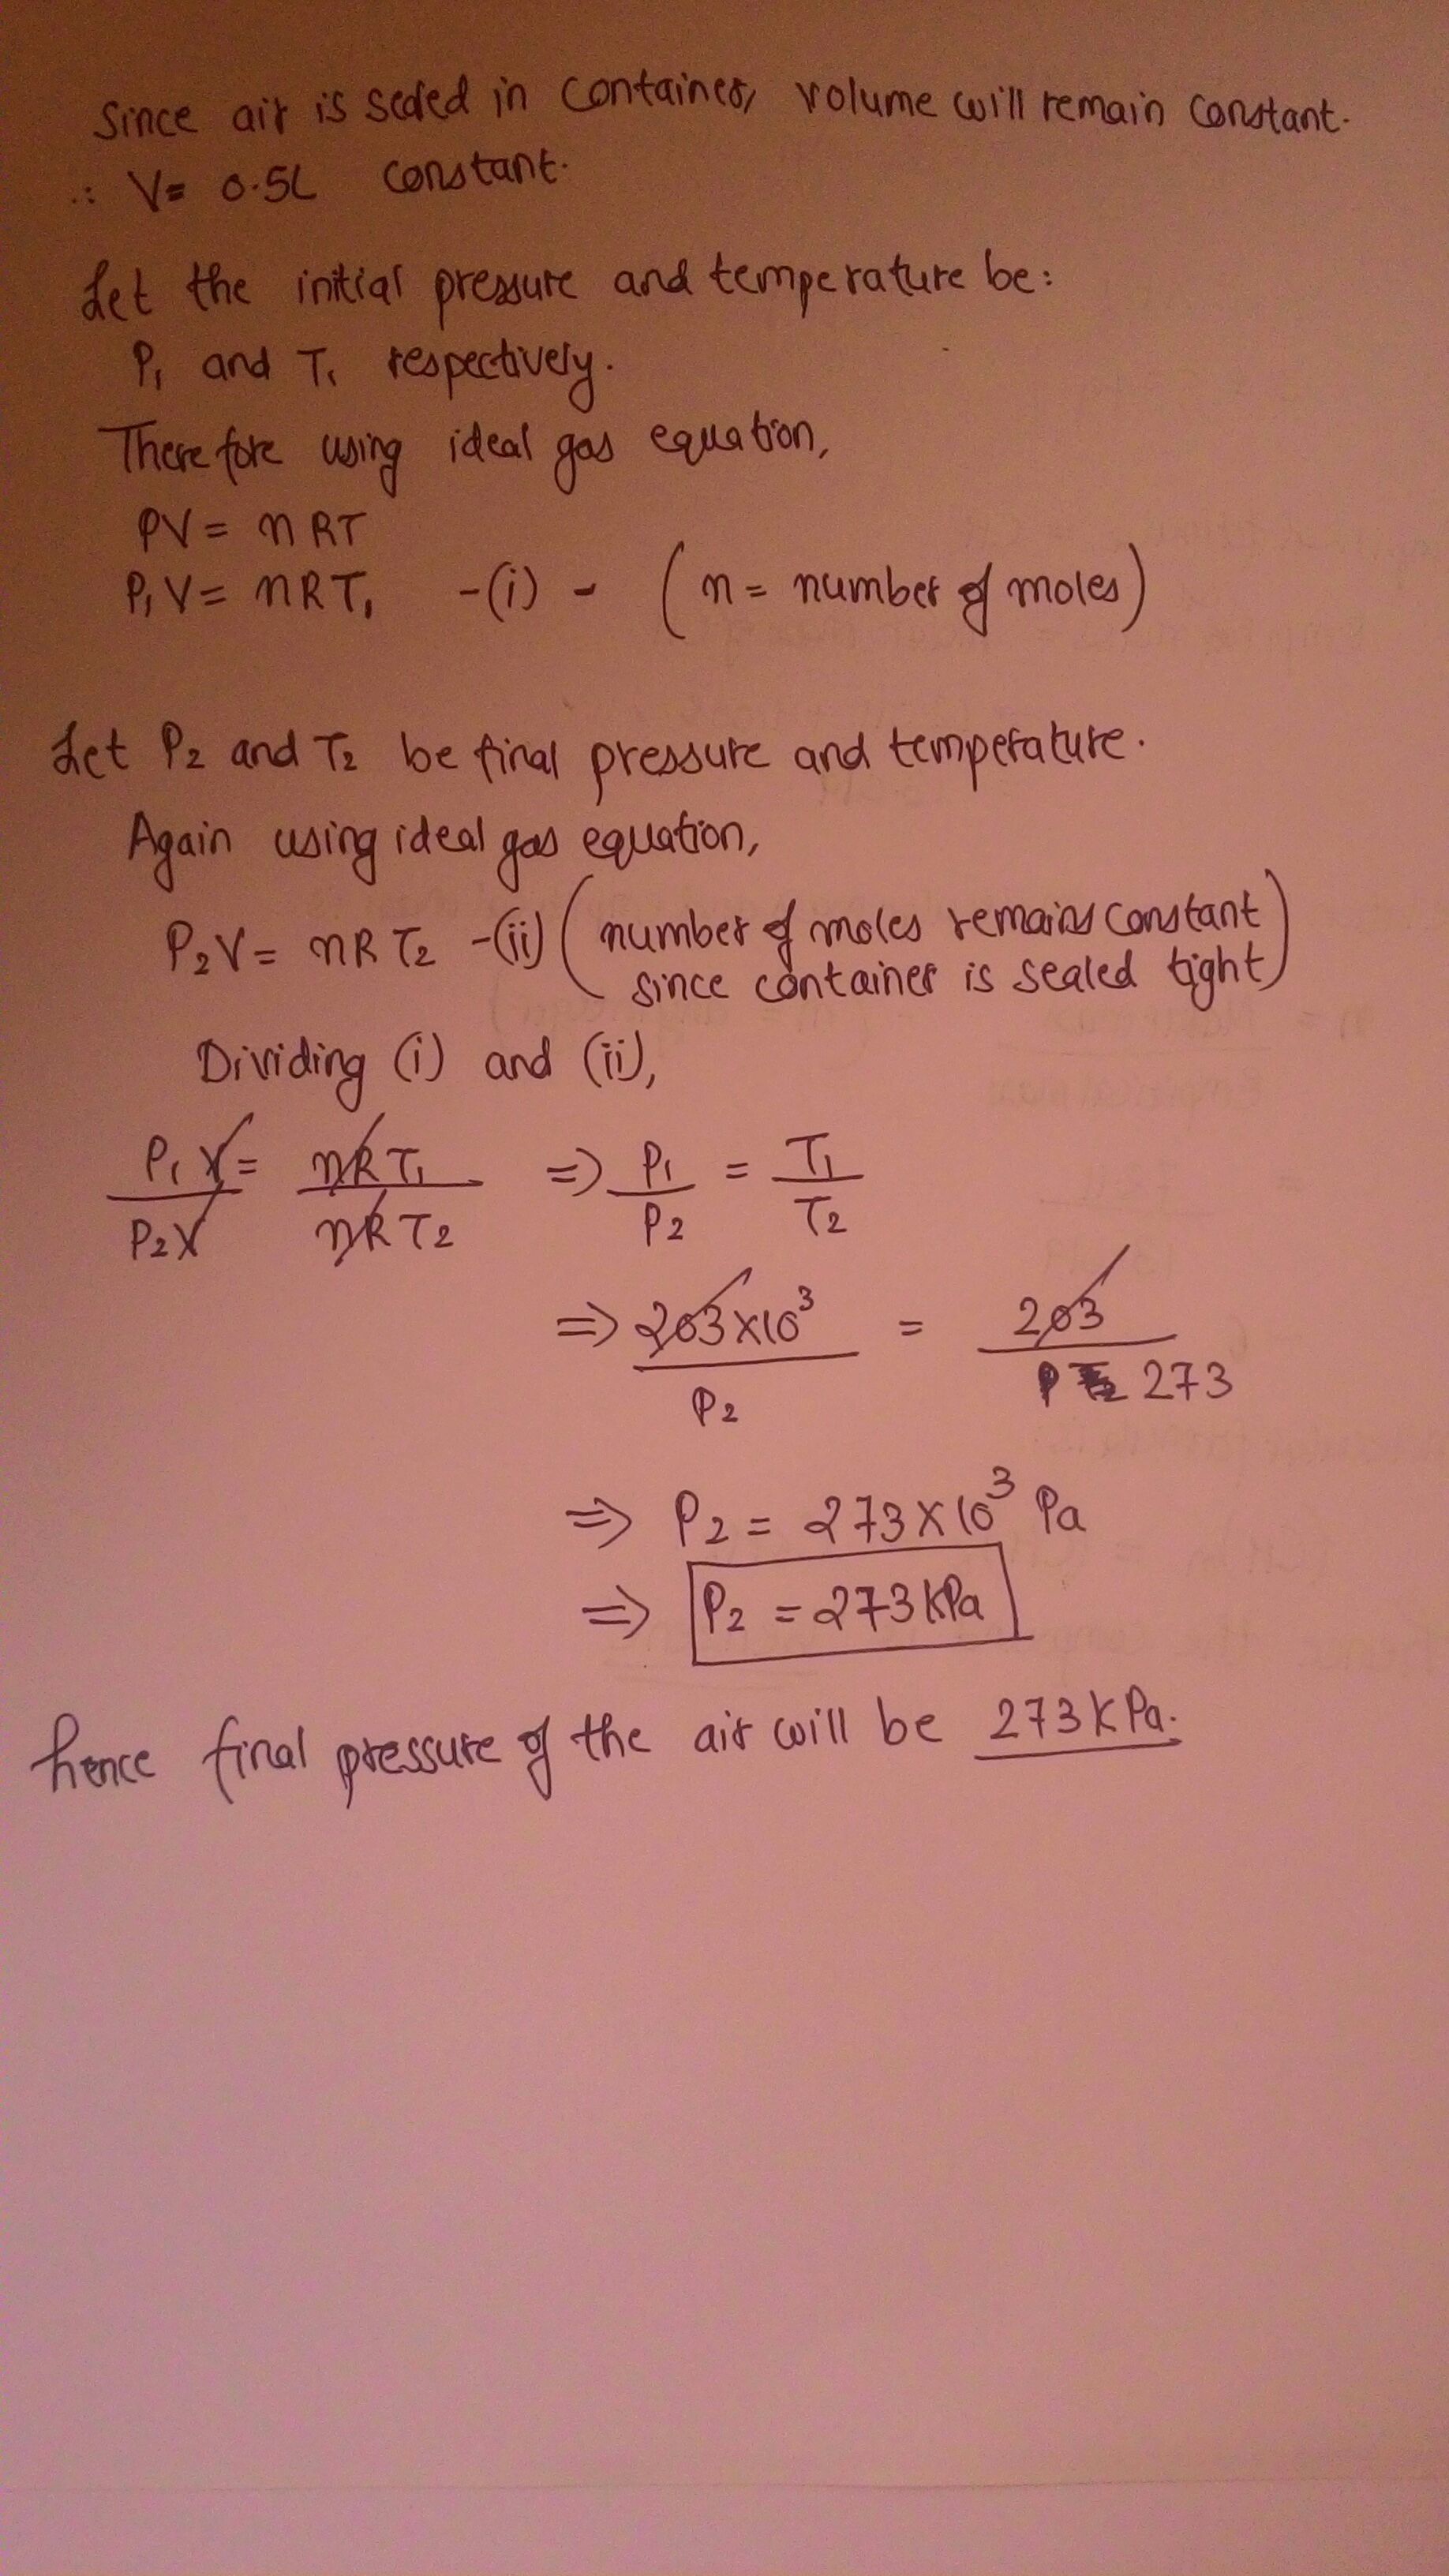 Since air is sealed in container, volume will remain constant.
∴ V = 0.5L constant.
Let the initial pressure and temperature be:
P₁ and T₁ respectively.
Therefore using ideal gas equation,
PV = nRT
P₁V = nRT₁ -(i) - (n = number of moles)
Let P₂ and T₂ be final pressure and temperature.
Again using ideal gas equation,
P₂V = nRT₂ -(ii) (number of moles remains constant
since container is sealed tight)
Dividing (i) and (ii),
P₁V/P₂V = nRT₁/nRT₂ => P₁/P₂ = T₁/T₂
=> 203×10³/P₂ = 203/273
=> P₂ = 273×10³ Pa
=> P₂ = 273 kPa
hence final pressure of the air will be 273 KPa.